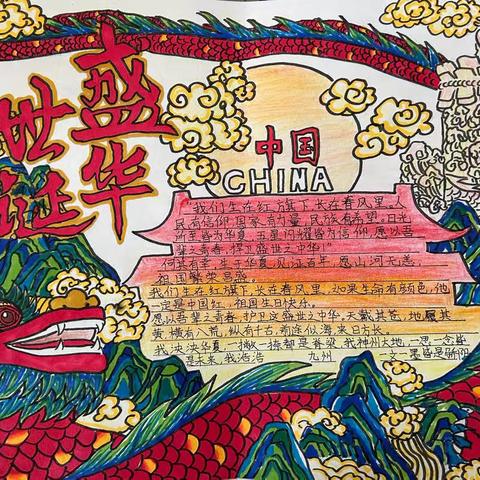 盛世华诞
中国
CHINA
"我们生在红旗下,长在春风里,人
民有信仰,国家有力量,民族有希望,目光
所至皆为华夏,五星闪耀皆为信仰,愿以吾
辈之青春,捍卫盛世之中华!"
何其有幸,生于华夏,见证百年,愿山河无恙,
祖国繁荣昌盛
我们生在红旗下,长在春风里,如果生命有颜色,他
一定是中国红,祖国生日快乐。
愿以吾辈之青春,护卫这盛世之中华,天戴其苍,地履其
黄,横有八荒,纵有千古,前途似海,来日方长。
我泱泱华夏,一撇一捺都是脊梁,我神州大地,一思一念皆
是未来,我浩浩 九州 一文一墨皆是骄阳